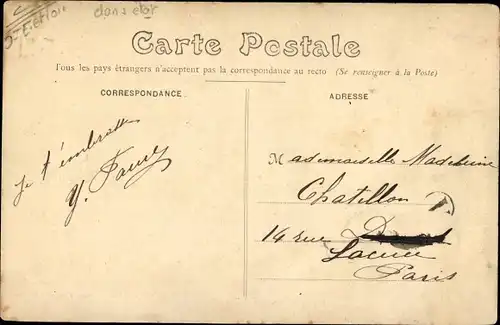 dans etat
Carte Postale
Tous les pays étrangers n'acceptent pas la correspondance au recto (Se renseigner à la Poste)
CORRESPONDANCE
ADRESSE
Je t'embrasse
Y.
Mademoiselle Madeleine
Chatillon
14 rue
Lacuée
Paris